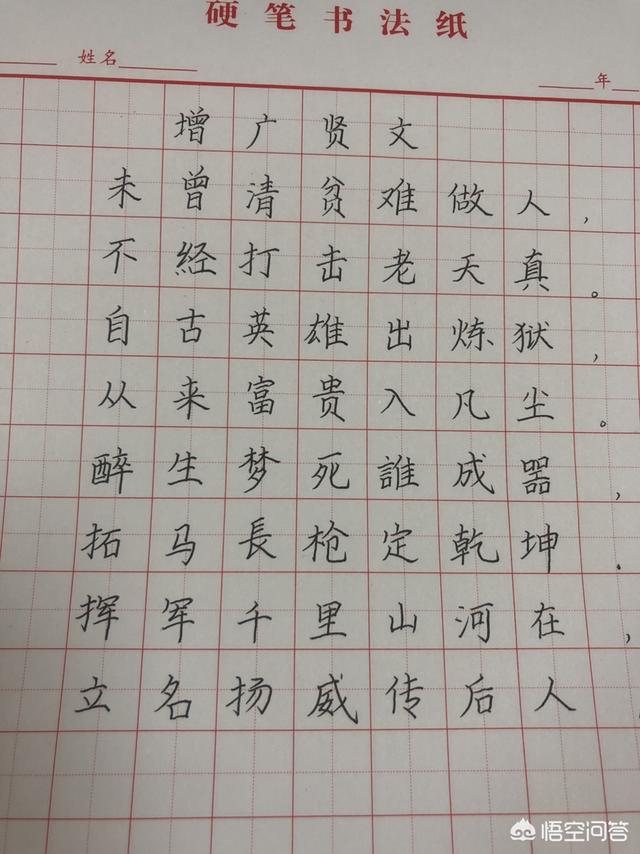 硬笔书法纸
姓名
年
增广贤文
未曾清贫难做人，
不经打击老天真。
自古英雄出炼狱，
从来富贵入凡尘。
醉生梦死誰成噐，
拓马長枪定乾坤.
挥军千里山河在，
立名扬威传后人
悟空问答